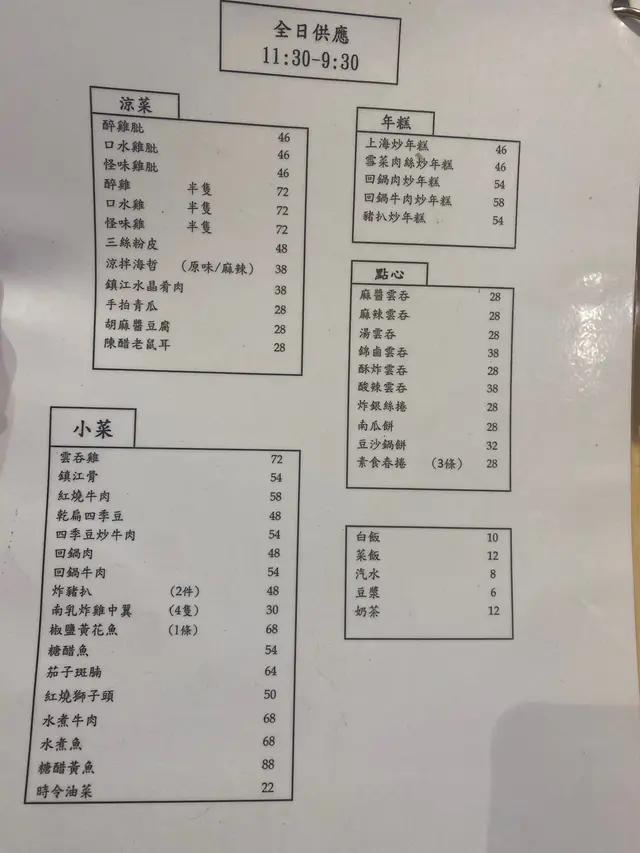 全日供應
11:30-9:30
涼菜
醉雞肶 46
口水雞肶 46
怪味雞肶 46
醉雞 半隻 72
口水雞 半隻 72
怪味雞 半隻 72
三絲粉皮 48
涼拌海哲 (原味/麻辣) 38
鎮江水晶肴肉 38
手拍青瓜 28
胡麻醬豆腐 28
陳醋老鼠耳 28
小菜
雲吞雞 72
鎮江骨 54
紅燒牛肉 58
乾扁四季豆 48
四季豆炒牛肉 54
回鍋肉 48
回鍋牛肉 54
炸豬扒 (2件) 48
南乳炸雞中翼 (4隻) 30
椒鹽黃花魚 (1條) 68
糖醋魚 54
茄子斑腩 64
紅燒獅子頭 50
水煮牛肉 68
水煮魚 68
糖醋黃魚 88
時令油菜 22
年糕
上海炒年糕 46
雪菜肉絲炒年糕 46
回鍋肉炒年糕 54
回鍋牛肉炒年糕 58
豬扒炒年糕 54
點心
麻醬雲吞 28
麻辣雲吞 28
湯雲吞 28
錦鹵雲吞 38
酥炸雲吞 28
酸辣雲吞 38
炸銀絲捲 28
南瓜餅 28
豆沙鍋餅 32
素食春捲 (3條) 28
白飯 10
菜飯 12
汽水 8
豆漿 6
奶茶 12